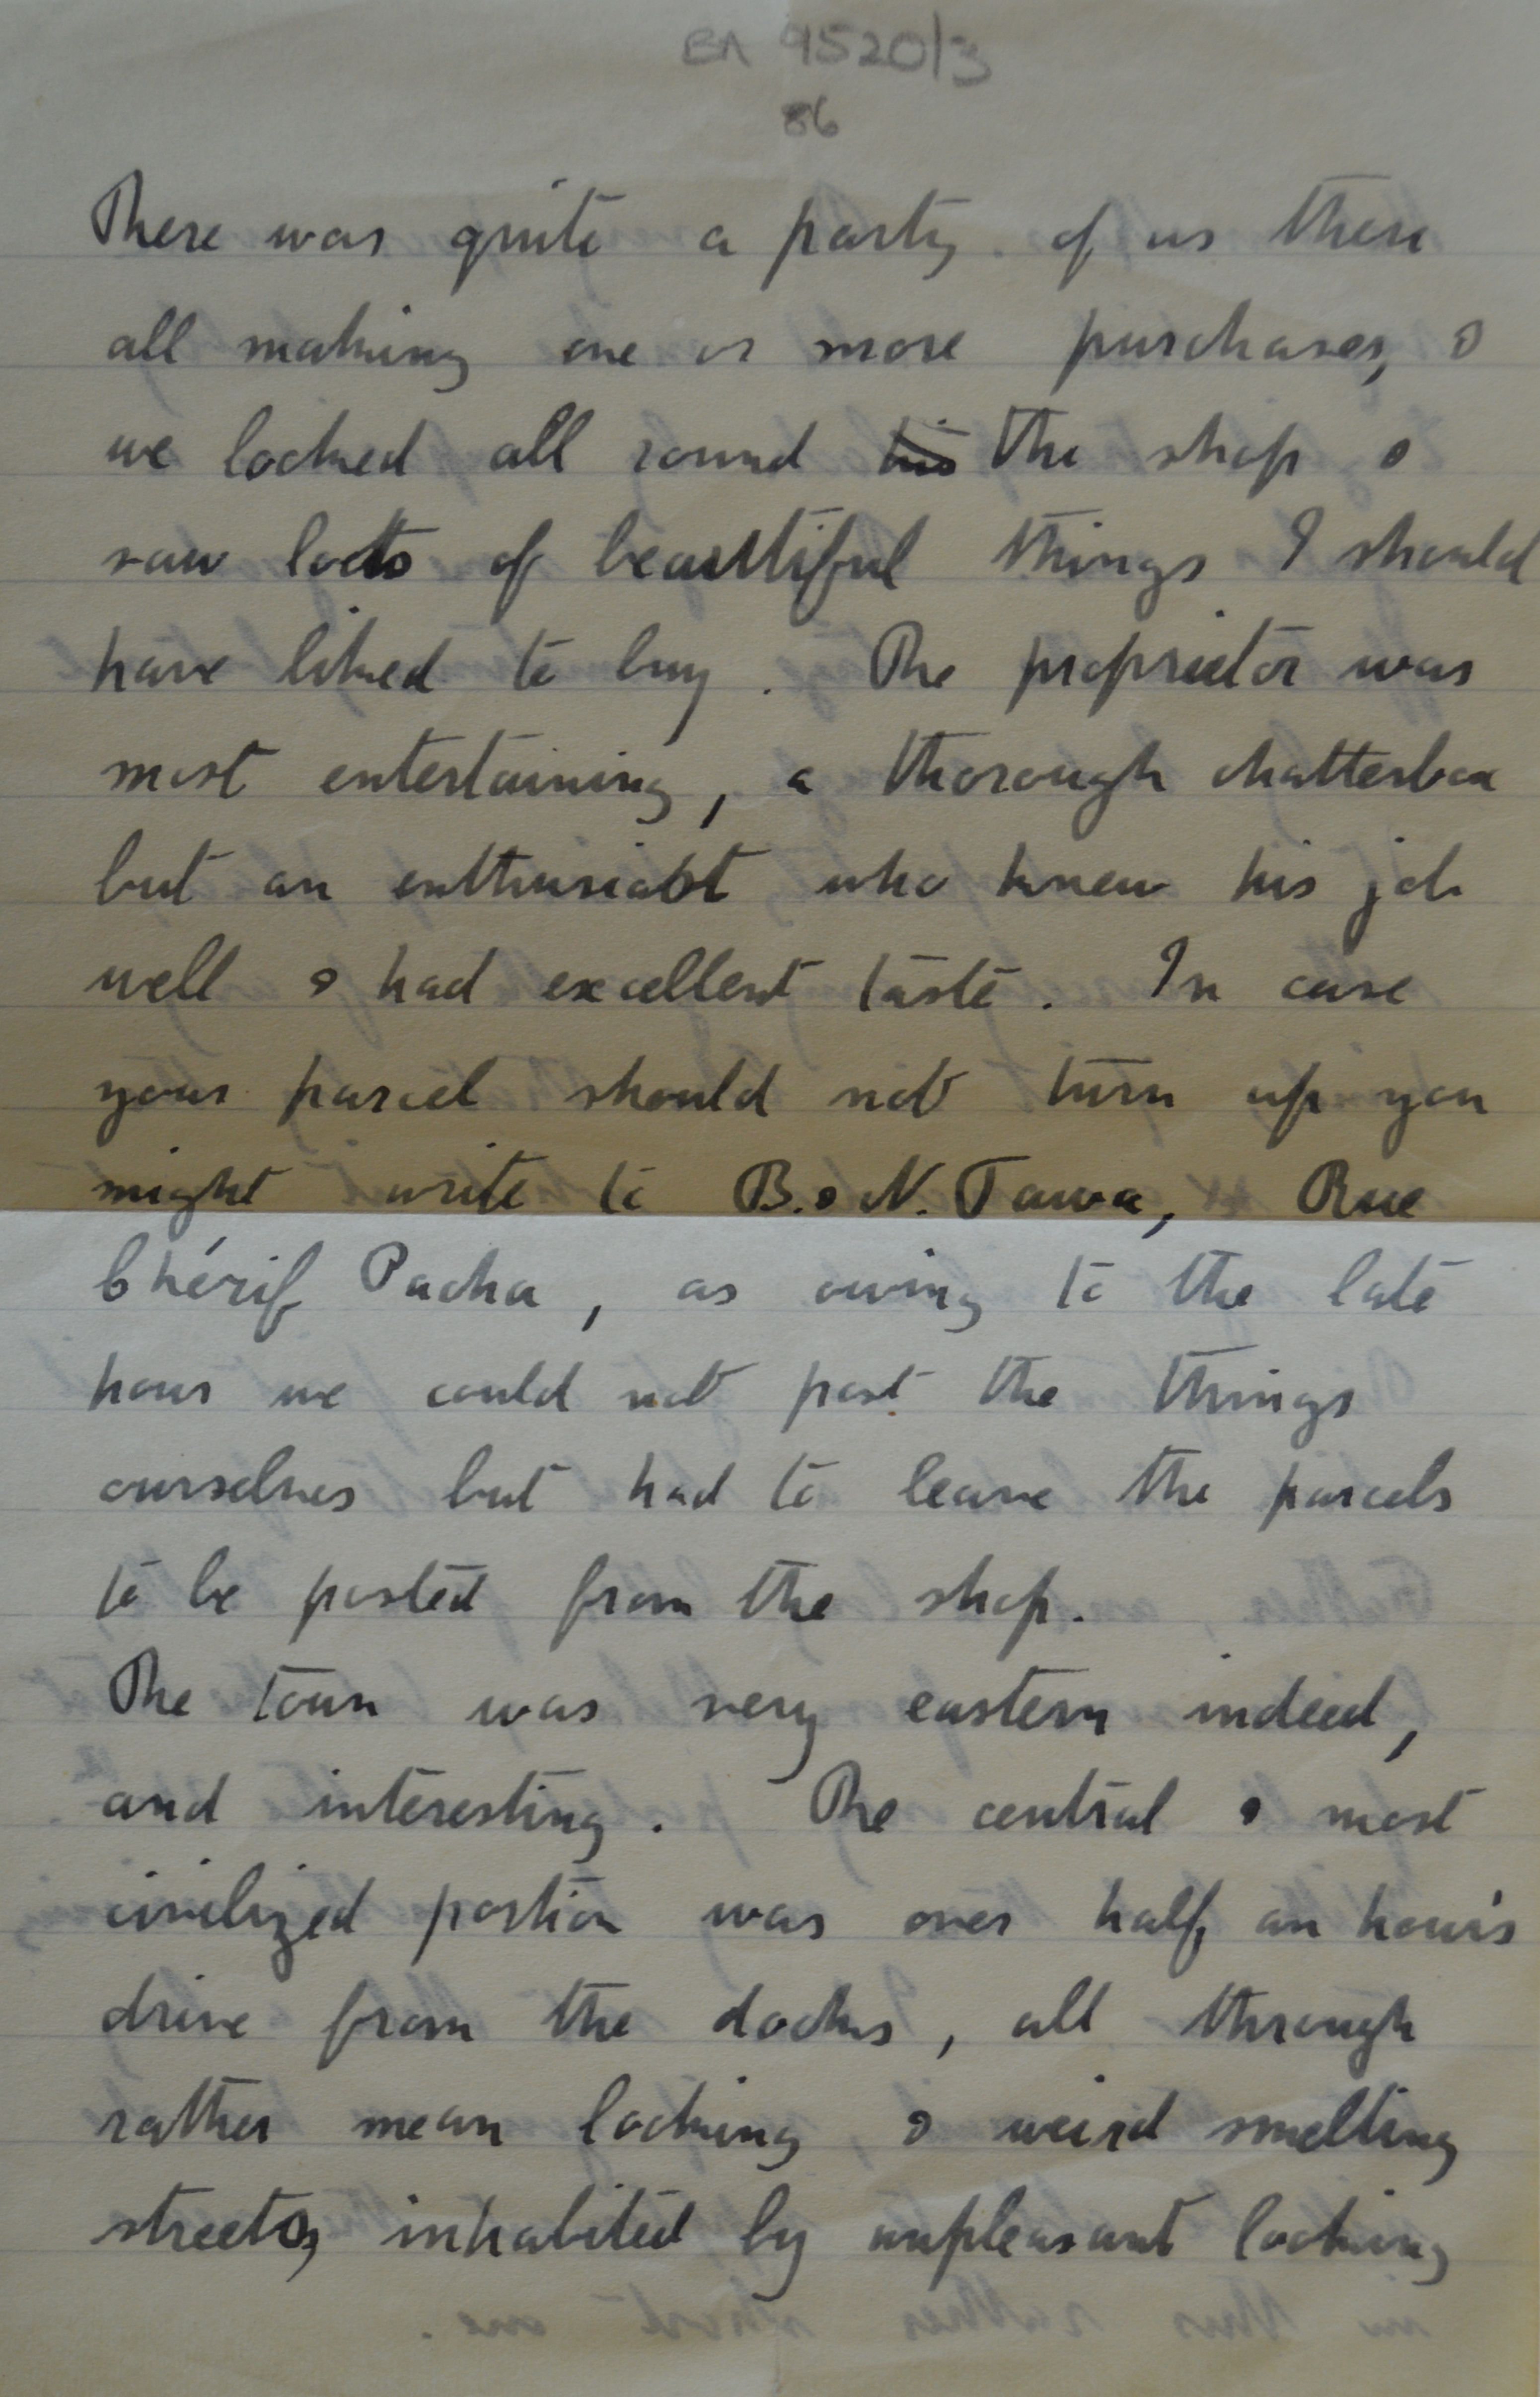 EA 9520/3
86
There was quite a party of us there
all making one or more purchases, &
we looked all round his the shop &
saw lots of beautiful things I should
have liked to buy. The proprietor was
most entertaining, a thorough chatterbox
but an enthusiast who knew his job
well & had excellent taste. In case
your parcel should not turn up you
might write to B. & N. Tawa, Rue
Chérif Pacha, as owing to the late
hour we could not post the things
ourselves but had to leave the parcels
to be posted from the shop.
The town was very eastern indeed,
and interesting. The central & most
civilized portion was over half an hour's
drive from the docks, all through
rather mean looking & weird smelling
streets, inhabited by unpleasant looking